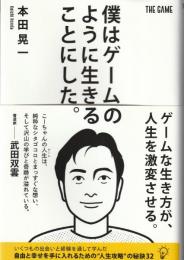 本田晃一
Koichi Honda
THE GAME
僕はゲームの
ように生きる
ことにした。
ゲームな生き方が、
人生を激変させる。
こーちゃんの人生は、
純粋なシタゴココロとまっすぐな想い、
そして沢山の学びと奇跡が溢れている。
書道家
武田双雲
いくつもの出会いと経験を通して学んだ
自由と幸せを手に入れるための“人生攻略”の秘訣32